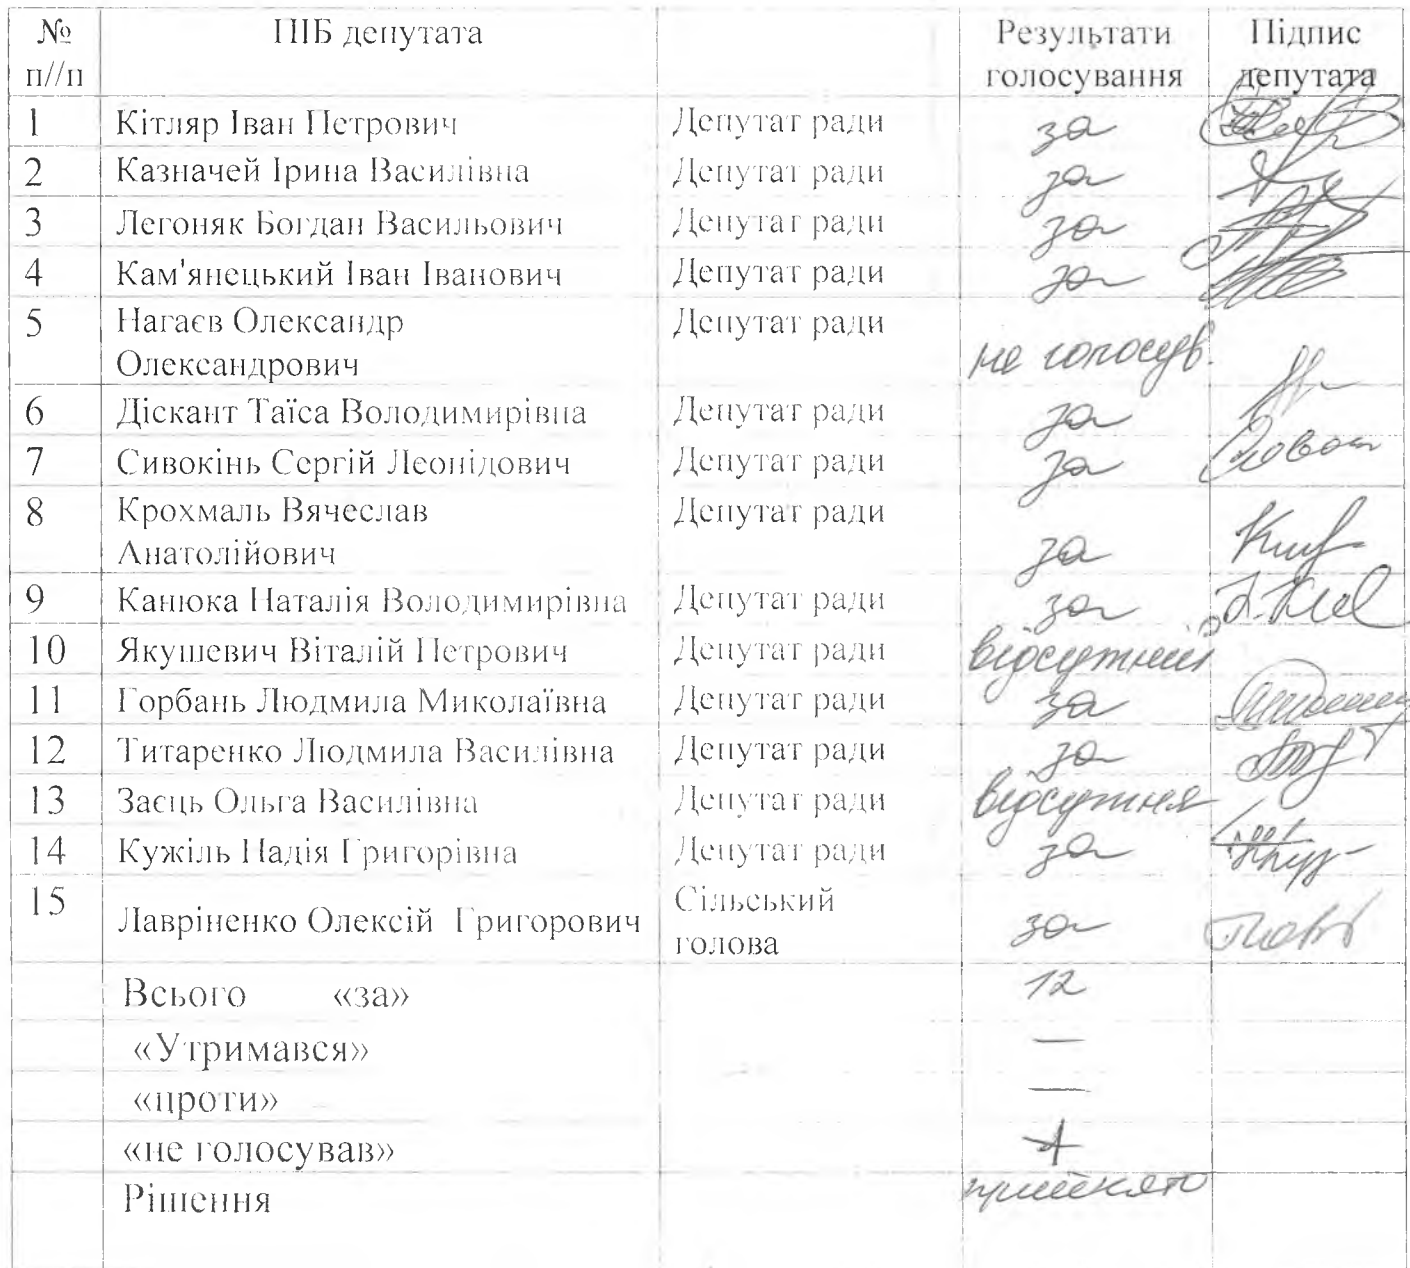 № п//п ПІБ депутата Результати голосування Підпис депутата
1 Кітляр Іван Петрович Депутат ради за
2 Казначей Ірина Василівна Депутат ради за
3 Легоняк Богдан Васильович Депутат ради за
4 Кам'янецький Іван Іванович Депутат ради за
5 Нагаєв Олександр Олександрович Депутат ради не голосув.
6 Діскант Таїса Володимирівна Депутат ради за
7 Сивокінь Сергій Леонідович Депутат ради за
8 Крохмаль Вячеслав Анатолійович Депутат ради за
9 Канюка Наталія Володимирівна Депутат ради за
10 Якушевич Віталій Петрович Депутат ради відсутній
11 Горбань Людмила Миколаївна Депутат ради за
12 Титаренко Людмила Василівна Депутат ради за
13 Заєць Ольга Василівна Депутат ради відсутня
14 Кужіль Надія Григорівна Депутат ради за
15 Лавріненко Олексій Григорович Сільський голова за
Всього «за» 12
«Утримався» —
«проти» —
«не голосував»
Рішення прийнято